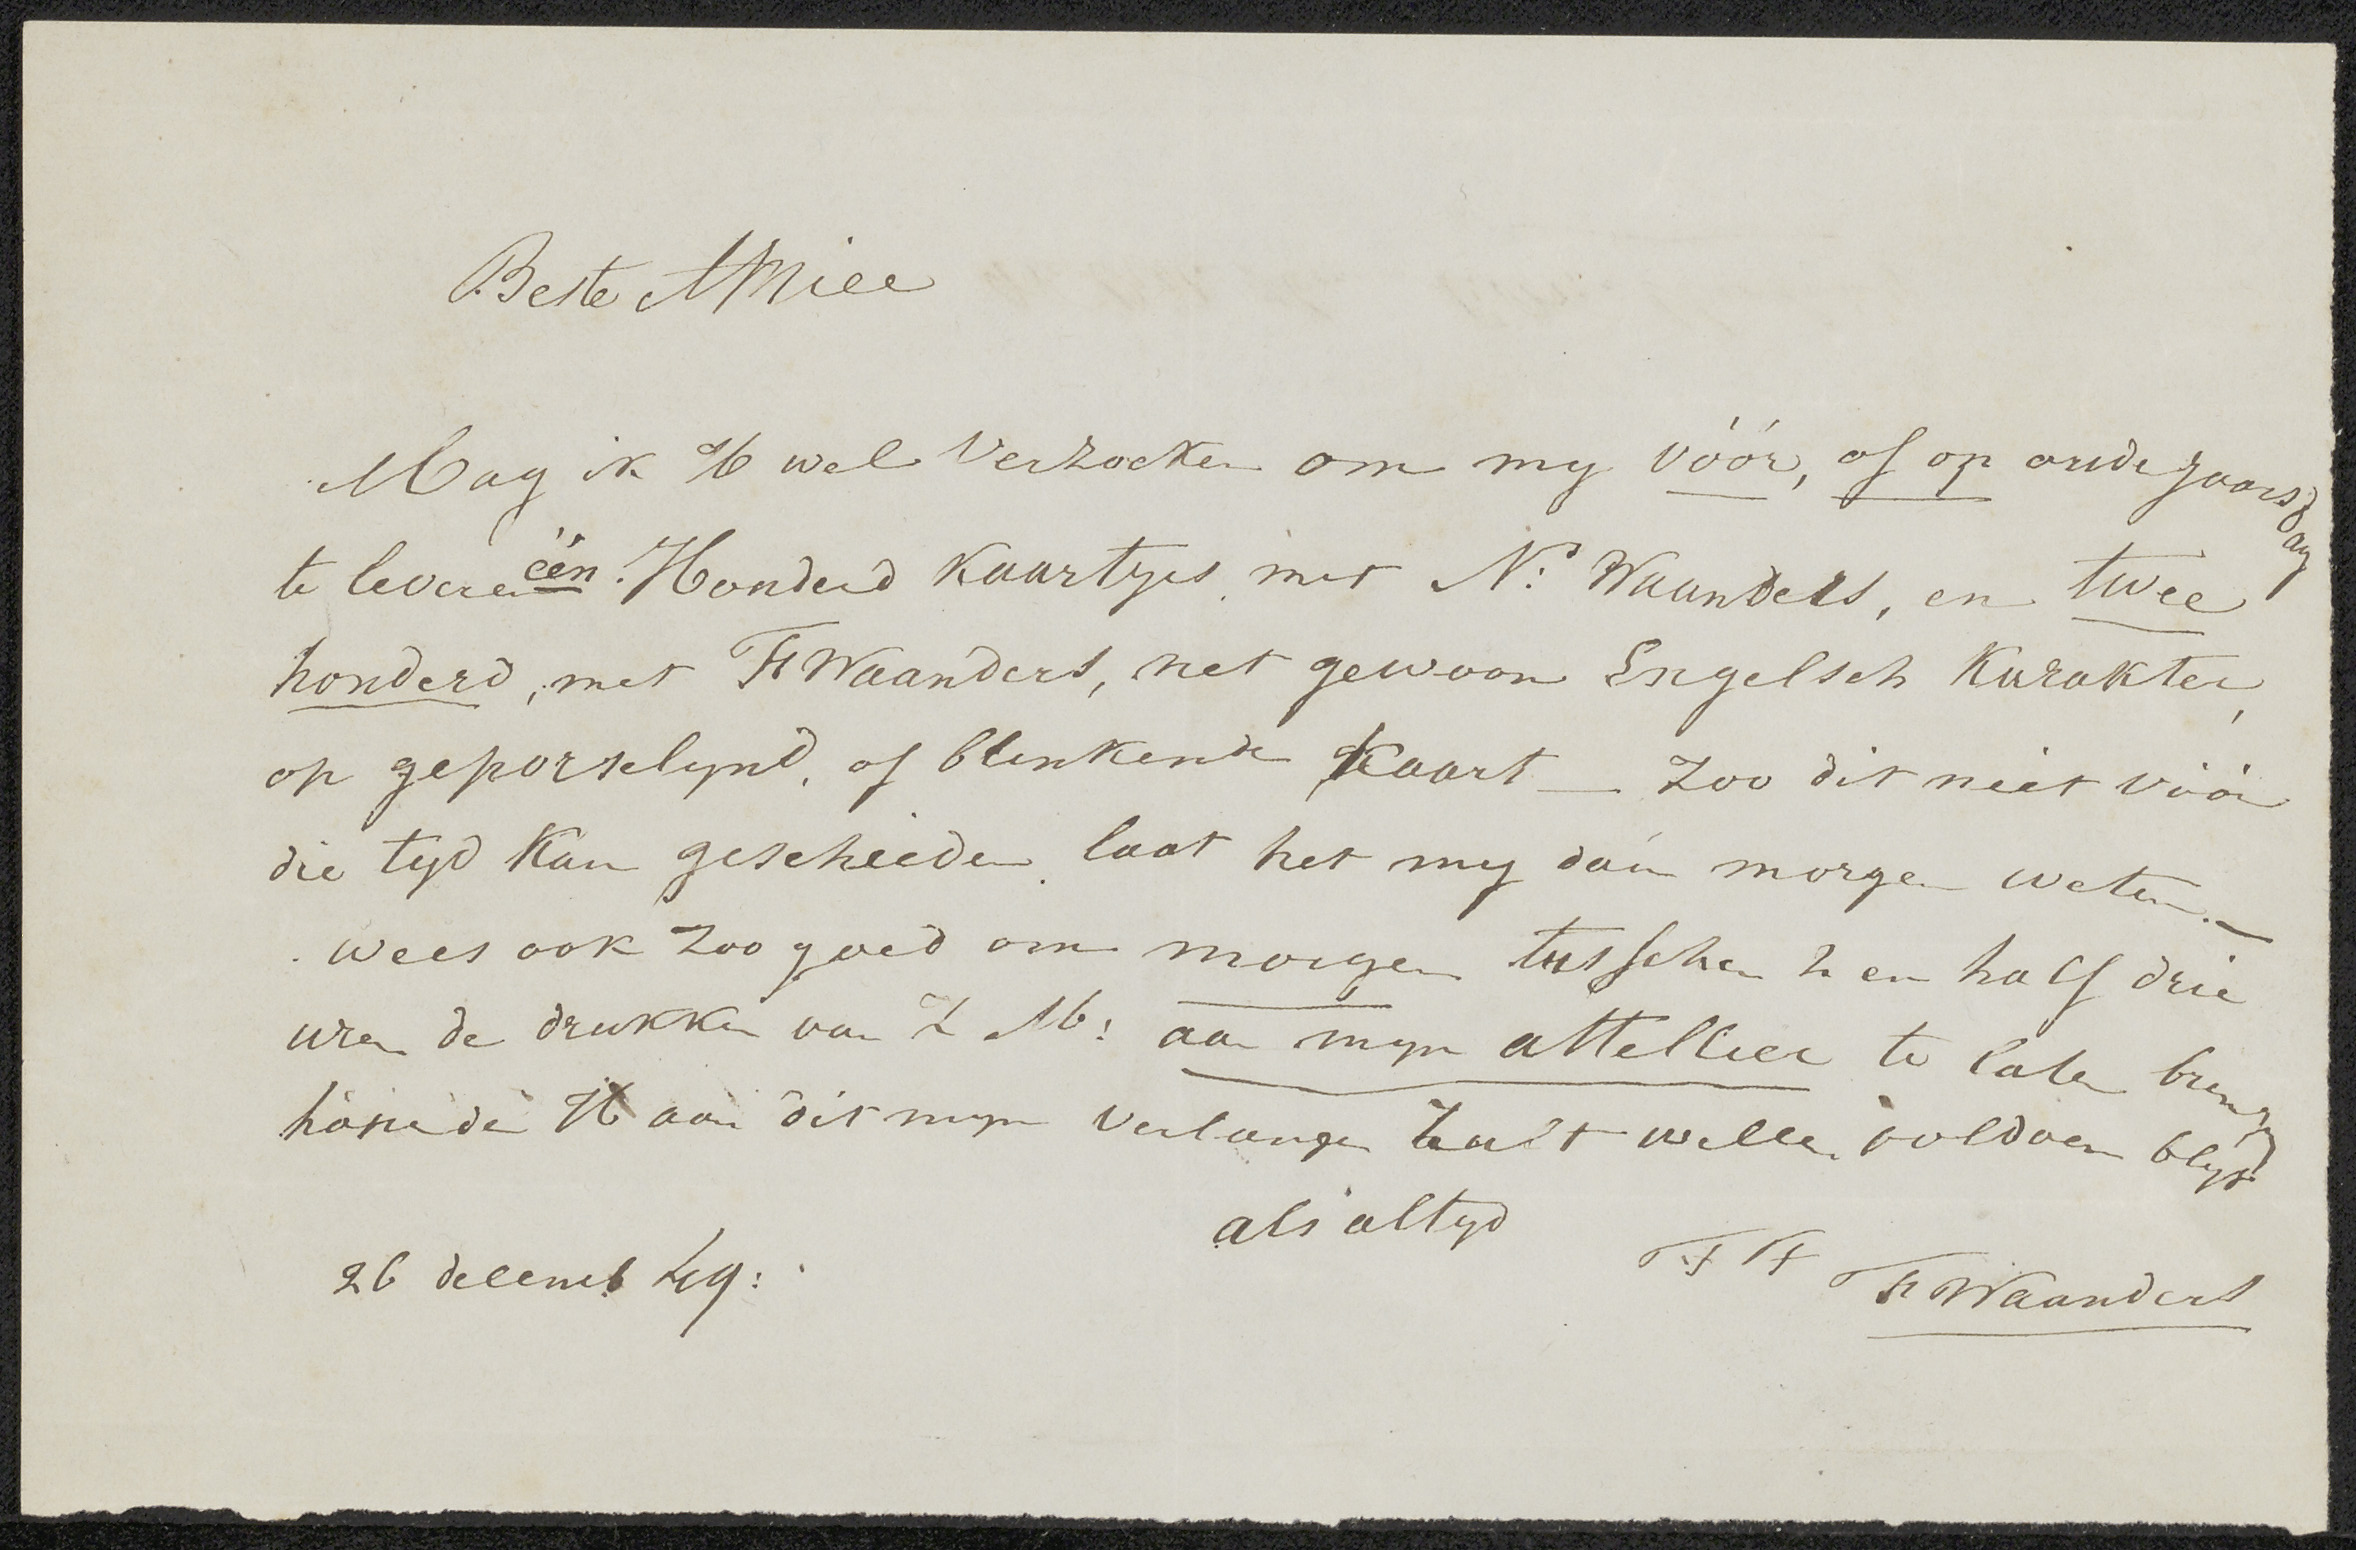 Beste AMice
Mag ik U wel verzoeken om my vóór, of op oudejaarsdag
te leveren één Honderd Kaartjes, met N: Waanders, en twee
honderd, met FWaanders, net gewoon Engelsch Karakter,
op geporselynd, of blinkende Kaart — Zoo dit niet vóór
die tyd Kan geschieden, laat het my dan morgen weten. —
wees ook zoo goed om morgen tusschen 2 en half drie
uren de drukken van Z M: aan myn attellier te laten brengen
hopende U aan dit myn verlangen zult willen voldoen blyf
als altyd
26 decemb 49:
FWaanders